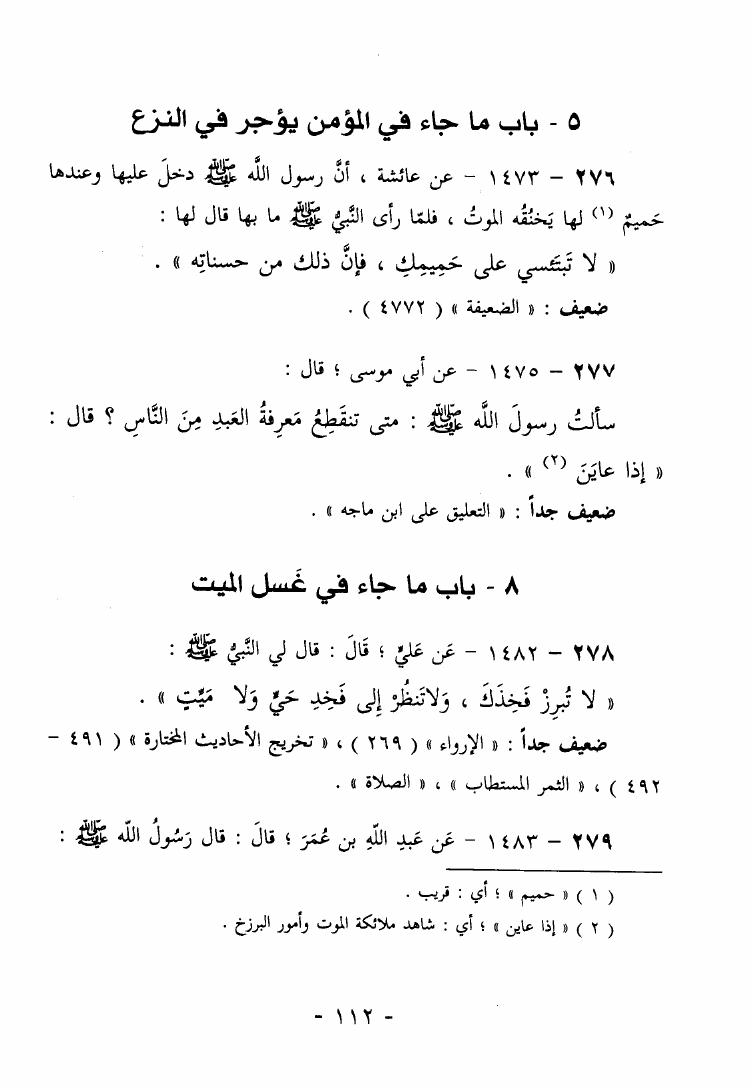 ٥ - باب ما جاء في المؤمن يؤجر في النزع
٢٧٦ – ١٤٧٣ – عن عائشة ، أنَّ رسول اللَّه ﷺ دخلَ عليها وعندها
حَميمٌ (١) لها يَخنُقُه الموتُ ، فلمّا رأى النَّبيُّ ﷺ ما بها قال لها :
« لا تَبتَئسي على حَمِيمِكِ ، فإنَّ ذلك من حسناتِه » .
ضعيف : « الضعيفة » ( ٤٧٧٢ ) .
٢٧٧ – ١٤٧٥ – عن أبي موسى ؛ قال :
سألتُ رسولَ اللَّه ﷺ : متى تنقَطِعُ مَعرِفةُ العَبدِ مِنَ النَّاسِ ؟ قال :
« إذا عايَنَ (٢) » .
ضعيف جداً : « التعليق على ابن ماجه » .
٨ - باب ما جاء في غَسل الميت
٢٧٨ – ١٤٨٢ – عَن عَليٍّ ؛ قَالَ : قال لي النَّبيُّ ﷺ :
« لا تُبرِزْ فَخِذَكَ ، وَلاتَنظُرْ إلى فَخِدِ حَيٍّ وَلا مَيِّتٍ » .
ضعيف جداً : « الإرواء » ( ٢٦٩ ) ، « تخريج الأحاديث المختارة » ( ٤٩١ –
٤٩٢ ) ، « الثمر المستطاب » ، « الصلاة » .
٢٧٩ – ١٤٨٣ – عَن عَبدِ اللَّهِ بن عُمَرَ ؛ قالَ : قال رَسُولُ اللّه ﷺ :
( ١ ) « حميم » ؛ أي : قريب .
( ٢ ) « إذا عاين » ؛ أي : شاهد ملائكة الموت وأمور البرزخ .
- ١١٢ -